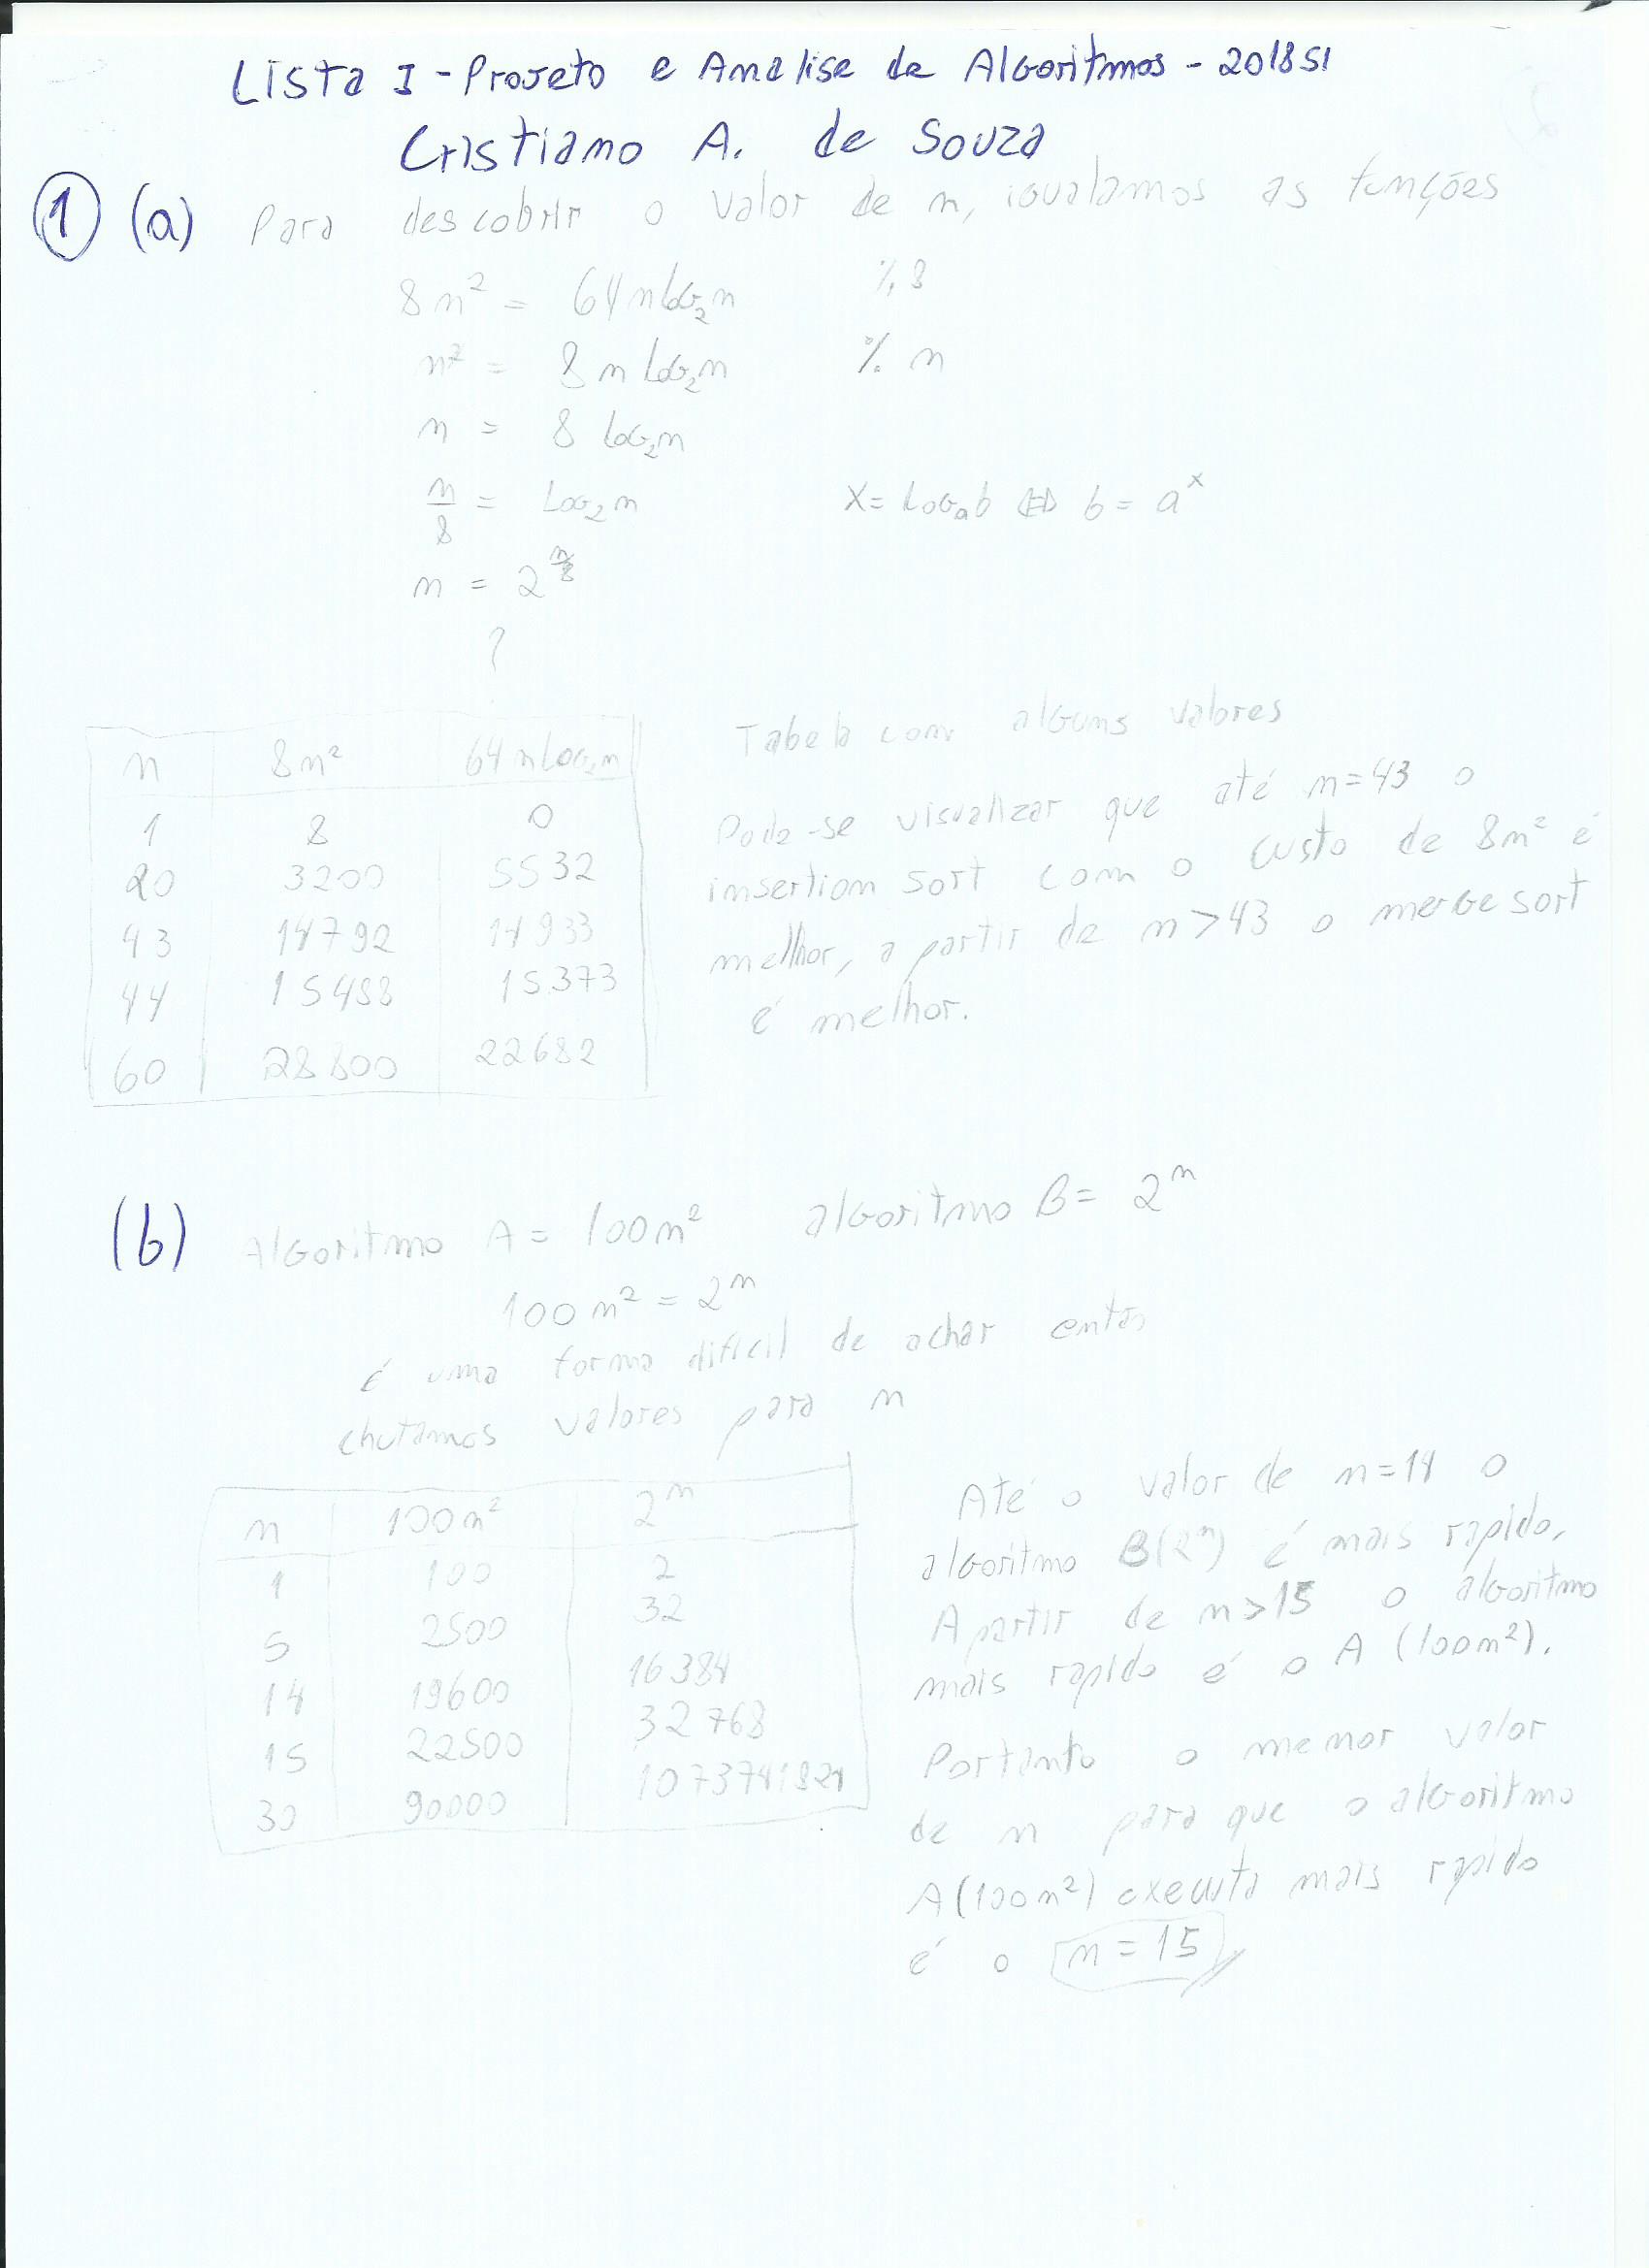 Lista I - Projeto e Analise de Algoritmos - 2018S1
Cristiano A. de Souza
1 (a) Para descobrir o valor de n, igualamos as funções
8n² = 64nlog₂n % 8
n² = 8nlog₂n % n
n = 8 log₂n
n/8 = Log₂n x = Logₐb ⇔ b = aˣ
n = 2^(n/8)
?
Tabela com alguns valores
n 8n² 64nLog₂n
1 8 0
20 3200 5532
43 14792 14933
44 15488 15373
60 28800 22682
Pode-se visualizar que até n=43 o
insertion sort com o custo de 8n² é
melhor, a partir de n>43 o merge sort
é melhor.
(b) Algoritmo A = 100n² algoritmo B = 2ⁿ
100n² = 2ⁿ
é uma forma dificil de achar entao
chutamos valores para n
n 100n² 2ⁿ
1 100 2
5 2500 32
14 19600 16384
15 22500 32768
30 90000 1073741824
Até o valor de n=14 o
algoritmo B(2ⁿ) é mais rapido,
A partir de n>15 o algoritmo
mais rapido é o A (100n²).
Portanto o menor valor
de n para que o algoritmo
A(100n²) executa mais rapido
é o n=15